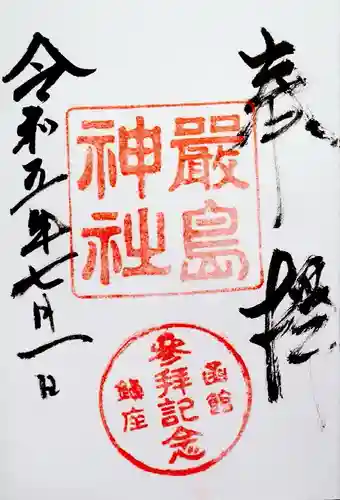 奉拝
嚴島
神社
函館
參拜記念
鎮座
令和五年七月一日